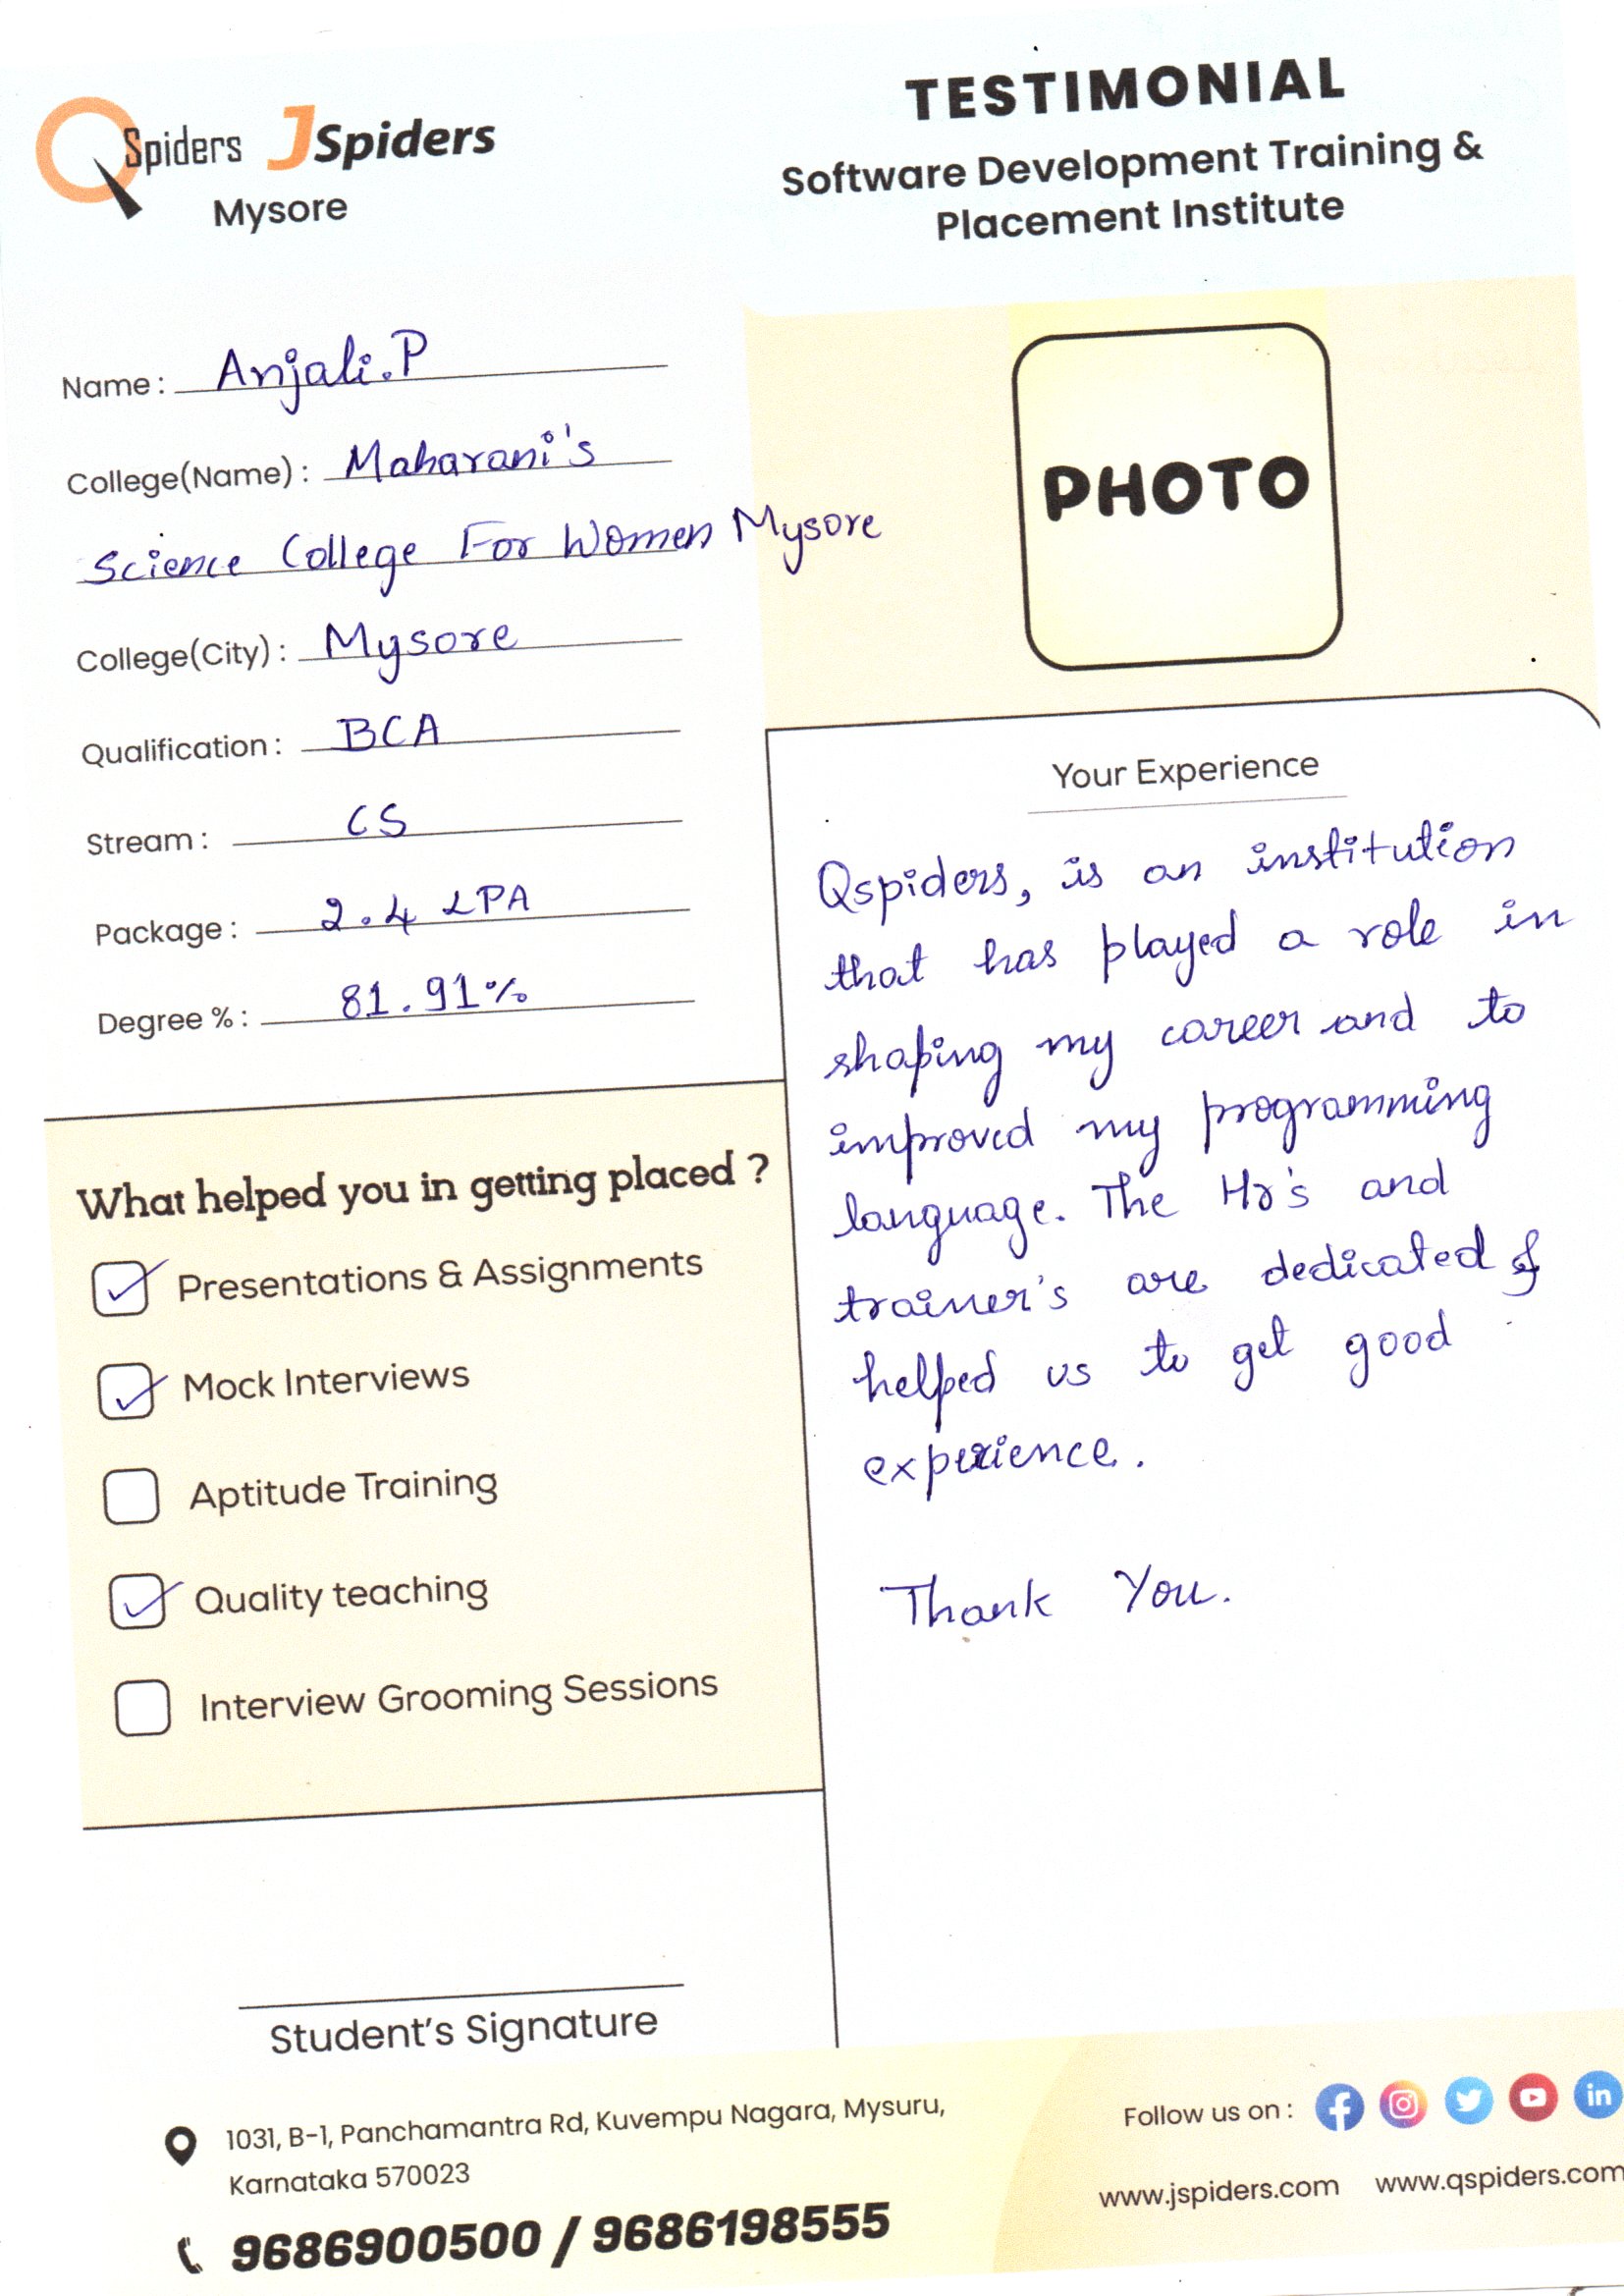 QSpiders JSpiders
Mysore
TESTIMONIAL
Software Development Training &
Placement Institute
Name : Anjali.P
College(Name) : Maharani's
Science College For Women Mysore
College(City) : Mysore
Qualification : BCA
Stream : CS
Package : 2.4 LPA
Degree % : 81.91%
PHOTO
What helped you in getting placed ?
Presentations & Assignments
Mock Interviews
Aptitude Training
Quality teaching
Interview Grooming Sessions
Student's Signature
Your Experience
Qspiders, is an institution
that has played a role in
shaping my career and to
improved my programming
language. The Hr's and
trainer's are dedicated &
helped us to get good
experience.
Thank You.
1031, B-1, Panchamantra Rd, Kuvempu Nagara, Mysuru,
Karnataka 570023
9686900500 / 9686198555
Follow us on :
www.jspiders.com www.qspiders.com